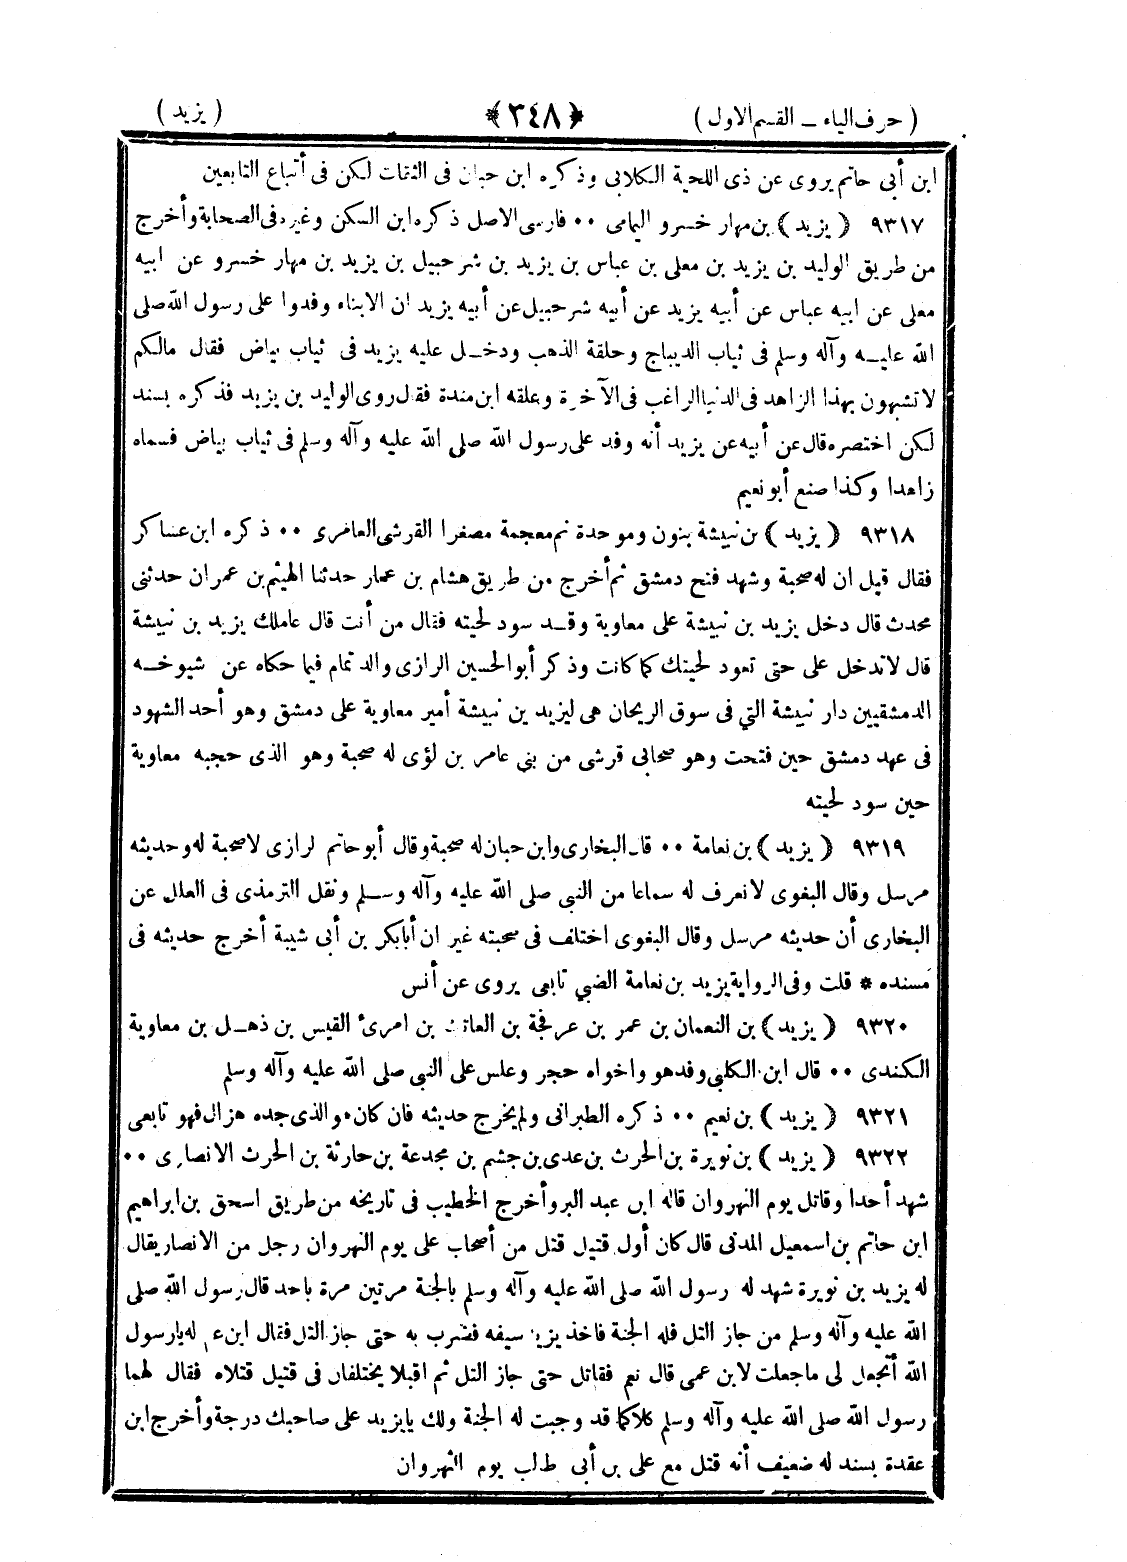 ( حرف الياء ــ القسم الاول ) ﴿ ٣٤٨ ﴾ ( يزيد )
ابن أبي حاتم يروى عن ذى اللحية الكلابى وذكره ابن حبان فى الثقات لكن فى أتباع التابعين
٩٣١٧ ( يزيد ) بن مهار خسرو اليمامى ٠٠ فارسى الاصل ذكره ابن السكن وغيره فى الصحابة وأخرج
من طريق الوليد بن يزيد بن معلى بن عباس بن يزيد بن شرحبيل بن يزيد بن مهار خسرو عن ابيه
معلى عن ابيه عباس عن أبيه يزيد عن أبيه شرحبيل عن أبيه يزيد ان الابناء وفدوا على رسول الله صلى
الله عليـــه وآله وسلم فى ثياب الديباج وحلقة الذهب ودخـل عليه يزيد فى ثياب بياض فقال مالكم
لا تشبهون بهذا الزاهد فى الدنيا الراغب فى الآخرة وعلقه ابن مندة فقال روى الوليد بن يزيد فذكره بسند
لكن اختصره قال عن أبيه عن يزيد أنه وفد على رسول الله صلى الله عليه وآله وسلم فى ثياب بياض فسماه
زاهدا وكذا صنع أبو نعيم
٩٣١٨ ( يزيد ) بن نبيشة بنون وموحدة ثم معجمة مصغرا القرشى العامرى ٠٠ ذكره ابن عساكر
فقال قيل ان له صحبة وشهد فتح دمشق ثم أخرج من طريق هشام بن عمار حدثنا الهيثم بن عمران حدثنى
محدث قال دخل يزيد بن نبيشة على معاوية وقـد سود لحيته فقال من أنت قال عاملك يزيد بن نبيشة
قال لا تدخل على حتى تعود لحيتك كما كانت وذكر أبو الحسين الرازى والد تمام فيما حكاه عن شيوخـه
الدمشقيين دار نبيشة التي فى سوق الريحان هى ليزيد بن نبيشة أمير معاوية على دمشق وهو أحد الشهود
فى عهد دمشق حين فتحت وهو صحابى قرشى من بني عامر بن لؤى له صحبة وهو الذى حجبه معاوية
حين سود لحيته
٩٣١٩ ( يزيد ) بن نعامة ٠٠ قال البخارى وابن حبان له صحبة وقال أبو حاتم الرازى لا صحبة له وحديثه
مرسل وقال البغوى لا نعرف له سماعا من النبي صلى الله عليه وآله وسـلم ونقل الترمذى فى العلل عن
البخارى أن حديثه مرسل وقال البغوى اختلف فى صحبته غير ان أبا بكر بن أبى شيبة أخرج حديثه فى
مسنده * قلت وفى الرواية يزيد بن نعامة الضبي تابعى يروى عن أنس
٩٣٢٠ ( يزيد ) بن النعمان بن عمر بن عرفجة بن العاتك بن امرئ القيس بن ذهـل بن معاوية
الكندى ٠٠ قال ابن الكلبى وفد هو واخواه حجر وعلس على النبي صلى الله عليه وآله وسلم
٩٣٢١ ( يزيد ) بن نعيم ٠٠ ذكره الطبرانى ولم يخرج حديثه فان كان هو الذى جده هزال فهو تابعى
٩٣٢٢ ( يزيد ) بن نويرة بن الحرث بن عدى بن جشم بن مجدعة بن حارثة بن الحرث الانصارى ٠٠
شهد أحدا وقاتل يوم النهروان قاله ابن عبد البر وأخرج الخطيب فى تاريخه من طريق اسحق بن ابراهيم
ابن حاتم بن اسمعيل المدنى قال كان أول قتيل قتل من أصحاب على يوم النهروان رجل من الانصار يقال
له يزيد بن نويرة شهد له رسول الله صلى الله عليه وآله وسلم بالجنة مرتين مرة باحد قال رسول الله صلى
الله عليه وآله وسلم من جاز التل فله الجنة فاخذ يزيد سيفه فضرب به حتى جاز التل فقال ابن عم له يارسول
الله أتجعل لى ما جعلت لابن عمى قال نعم فقاتل حتى جاز التل ثم اقبلا يختلفان فى قتيل قتلاه فقال لهما
رسول الله صلى الله عليه وآله وسلم كلاكما قد وجبت له الجنة ولك يا يزيد على صاحبك درجة وأخرج ابن
عقدة بسند له ضعيف أنه قتل مع على بن أبى طالب يوم النهروان